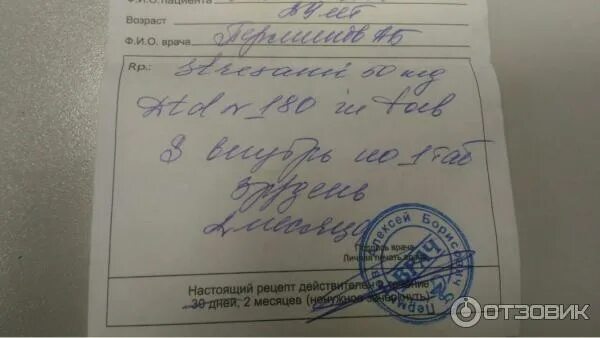 Ф.И.О. пациента
Возраст 24 лет
Ф.И.О. врача Перминов АБ
Rp.: Strezami 50 mg
Dtd N 180 in tab
S внутрь по 1 таб
3 р/день
2 месяца
Подпись врача
Личная печать врача
Алексей Борисович
ВРАЧ
Настоящий рецепт действителен в течение
30 дней, 2 месяцев (ненужное зачеркнуть)
ОТЗОВИК